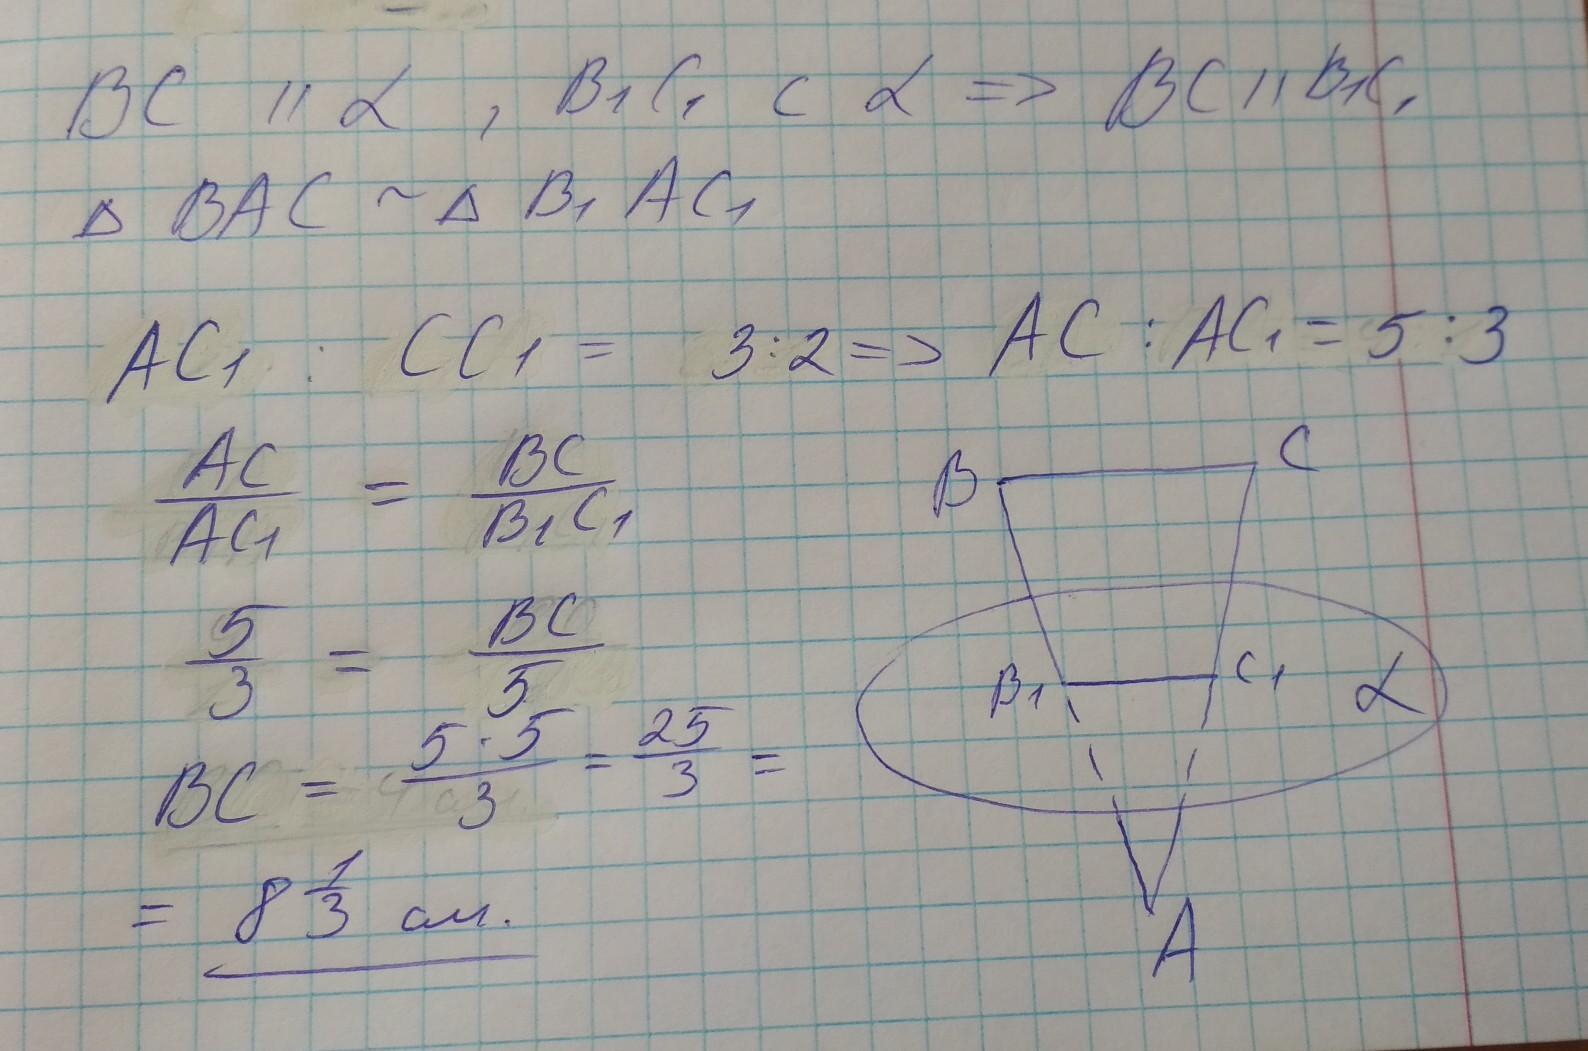 BC || α , B₁C₁ ⊂ α => BC || B₁C₁
Δ BAC ~ Δ B₁AC₁
AC₁ : CC₁ = 3:2 => AC : AC₁ = 5:3
AC/AC₁ = BC/B₁C₁
5/3 = BC/5
BC = 5·5/3 = 25/3 =
= 8 1/3 см.
B C
B₁ C₁ α
A